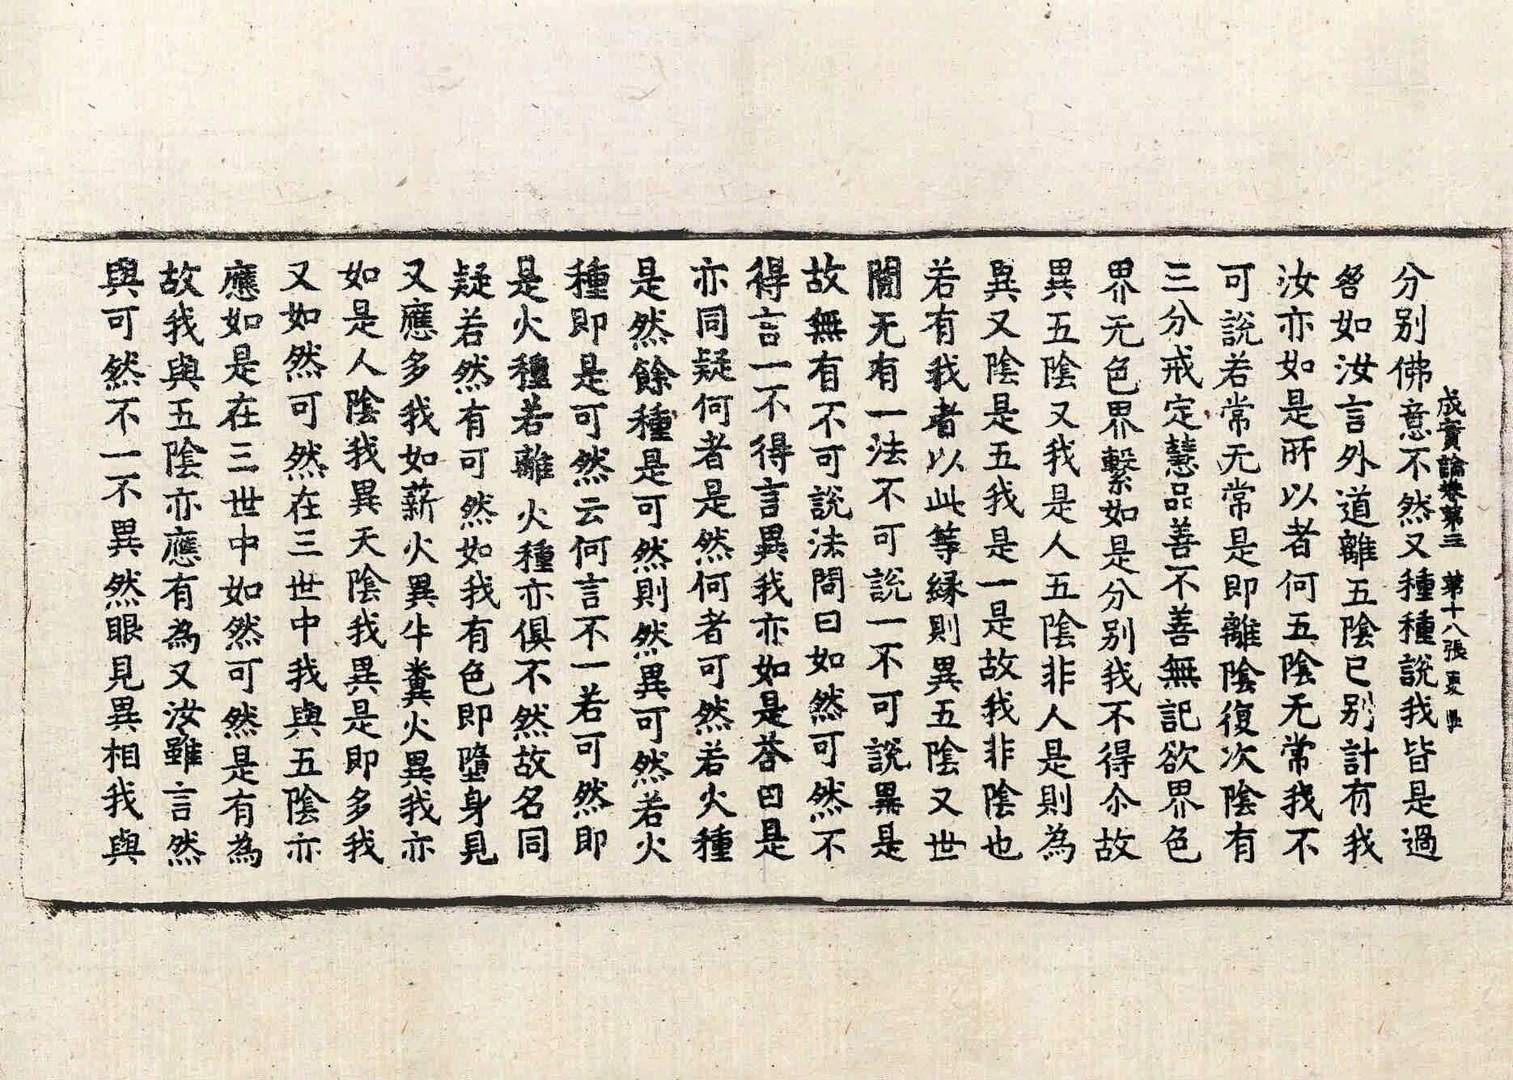 成實論卷第三 第十八張
分别佛意不然又種種說我皆是過
咎如汝言外道離五陰已别計有我
汝亦如是所以者何五陰无常我不
可說若常无常是即離陰復次陰有
三分戒定慧品善不善無記欲界色
界无色界繫如是分别我不得尒故
異五陰又我是人五陰非人是則為
異又陰是五我是一是故我非陰也
若有我者以此等縁則異五陰又世
間无有一法不可說一不可說異是
故無有不可說法問曰如然可然不
得言一不得言異我亦如是荅曰是
亦同疑何者是然何者可然若火種
是然餘種是可然則然異可然若火
種即是可然云何言不一若可然即
是火種若離火種亦俱不然故名同
疑若然有可然如我有色即墮身見
又應多我如薪火異牛糞火異我亦
如是人陰我異天陰我異是即多我
又如然可然在三世中我與五陰亦
應如是在三世中如然可然是有為
故我與五陰亦應有為又汝雖言然
與可然不一不異然眼見異相我與